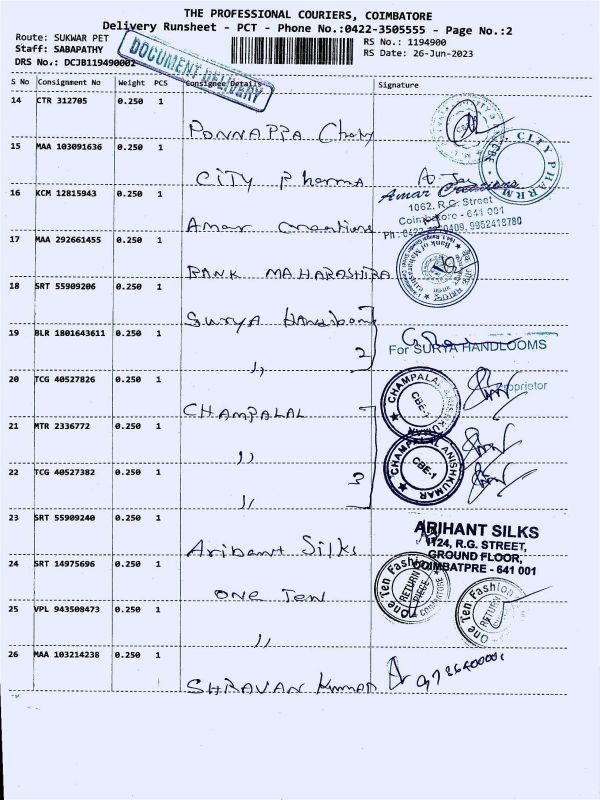 THE PROFESSIONAL COURIERS, COIMBATORE
Delivery Runsheet - PCT - Phone No.:0422-3505555 - Page No.:2
Route: SUKWAR PET
RS No.: 1194900
Staff: SABAPATHY
RS Date: 26-Jun-2023
DRS No.: DCJB119490002
DOCUMENT DELIVERY
S No Consignment No Weight PCS Consignee Details Signature
14 CTR 312705 0.250 1
PONNAPPA
15 MAA 103091636 0.250 1
CITY Pharma
CITY PHARM
16 KCM 12815943 0.250 1
Amar Creations
Amar Creations
1062, R.G. Street
Coimbatore - 641 001
9952418780
17 MAA 292661455 0.250 1
BANK MAHARASHTRA
Bank of Maharashtra
18 SRT 55909206 0.250 1
Surya
19 BLR 1801643611 0.250 1
,, 2
For SURYA HANDLOOMS
Proprietor
20 TCG 40527826 0.250 1
CHAMPALAL
CHAMPALAL ANISHKUMAR
CBE-1
21 MTR 2336772 0.250 1
,,
CHAMPALAL ANISHKUMAR
CBE-1
22 TCG 40527382 0.250 1
,, 3
23 SRT 55909240 0.250 1
Arihant Silks
ARIHANT SILKS
1124, R.G. STREET,
GROUND FLOOR,
COIMBATPRE - 641 001
24 SRT 14975696 0.250 1
ONE TEN
One Ten Fashion
RETURN
PIECE
COIMBATORE
25 VPL 943508473 0.250 1
,,
One Ten Fashion
RETURN
26 MAA 103214238 0.250 1
SHRAVAN Kumar